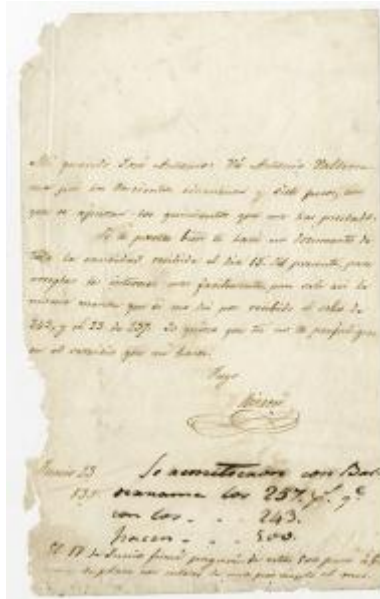 Mi querido José Antonio: Va Antonio Valderra-
ma por los doscientos cincuenta y siete pesos, con
que se ajustan los quinientos que me has prestado.
Si te parece bien te haré un documento de
toda la cantidad recibida el día 15 del presente, para
arreglar los intereses mas facilmente, pues solo así la
misma manera que si me di por recibido el saldo de
243, y el 23 de 257. Yo quiero que tu no te perjudiques
en el servicio que me haces.
Tuyo
Junio 23
Se con
los 257 ps. qe
con los - - 243.
hacen - - 500.
El 17 de Junio firmé pagaré de estos 500 pesos á 6
de plazo con interes de uno por ciento al mes.